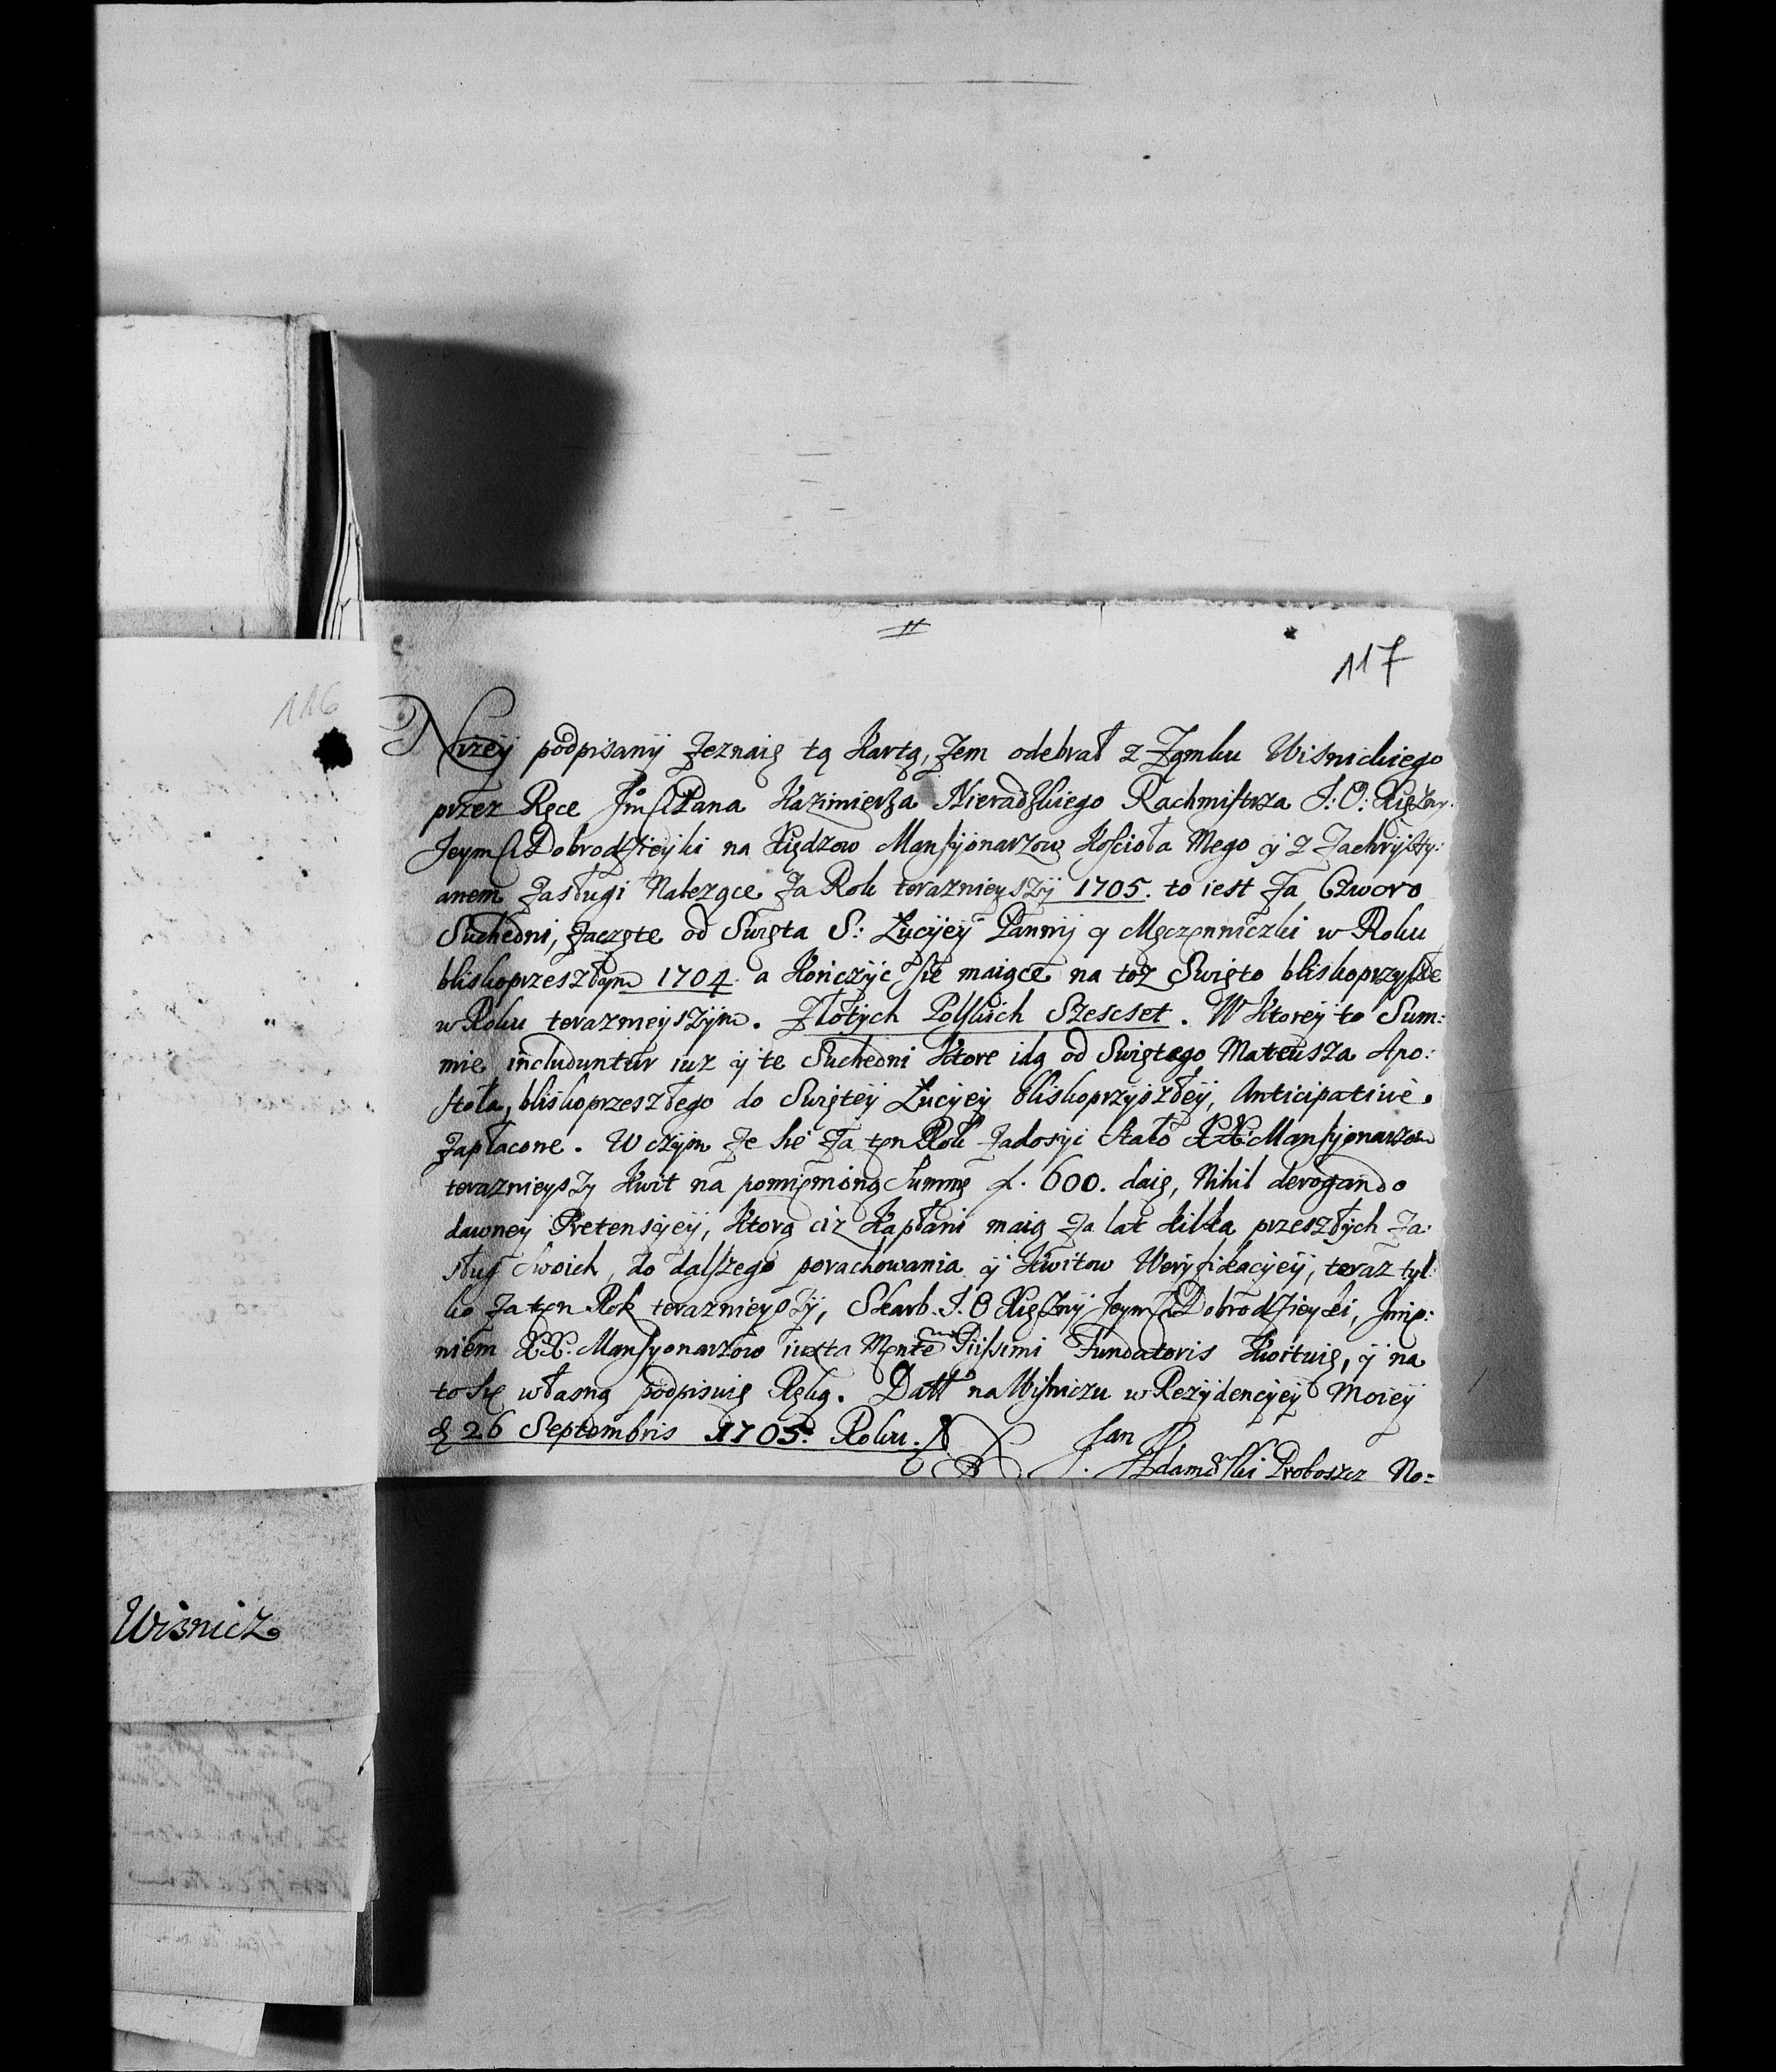 117
116
Nizey podpisany zeznaię tą Kartą, zem odebrał z Zamku Wisnickiego
przez Ręce Jm͠ści Pana Kazimierza Nieradzkiego Rachmistrza J: O: Xięzny
Jeymści Dobrodzieyki na Xiędzow Mansyonarzow Kościoła Mego y z Zachrysty:
anem zasługi Nalezące za Rok teraznieyszy 1705. to iest za Czworo
Suchedni, zaczęte od Swięta S: Łucyey Panny y Męczenniczki w Roku
bliskoprzeszłym 1704 a Kończyć się maiące na toz Swięto bliskoprzyszłe
w Roku teraznieyszym. Złotych Polskich Szescset. W Ktorey to Sum:
mie includuntur iuz y te Suchedni Ktore idą od Swiętego Mateusza Apo:
stoła, bliskoprzeszłego do Swiętey Łucyey bliskoprzyszłey, Anticipative
zapłacone. W czym ze się za ten Rok zadosyc stało XX. Mansyonarzom
teraznieyszy Kwit na pomienioną Summę f. 600. daię, Nihil derogando
dawney Pretensyey, Ktorą ciz Kapłani maią za lat kilka przeszłych za:
sług Swoich, do dalszego porachowania y Kwitow Weryfikacyey, teraz tyl:
ko za ten Rok teraznieyszy, Skarb. J. O Xięzny Jeymści Dobrodzieyki, Jmie:
niem XX. Mansyonarzow iuxta Mente͠ Piissimi Fundatoris Kwituię, y na
to się własną podpisuię Ręką. Datt na Wisniczu w Rezydencyey Moiey
d 26 Septembris 1705. Roku.
Jan
Adamski Proboszcz No=
Wisnicz